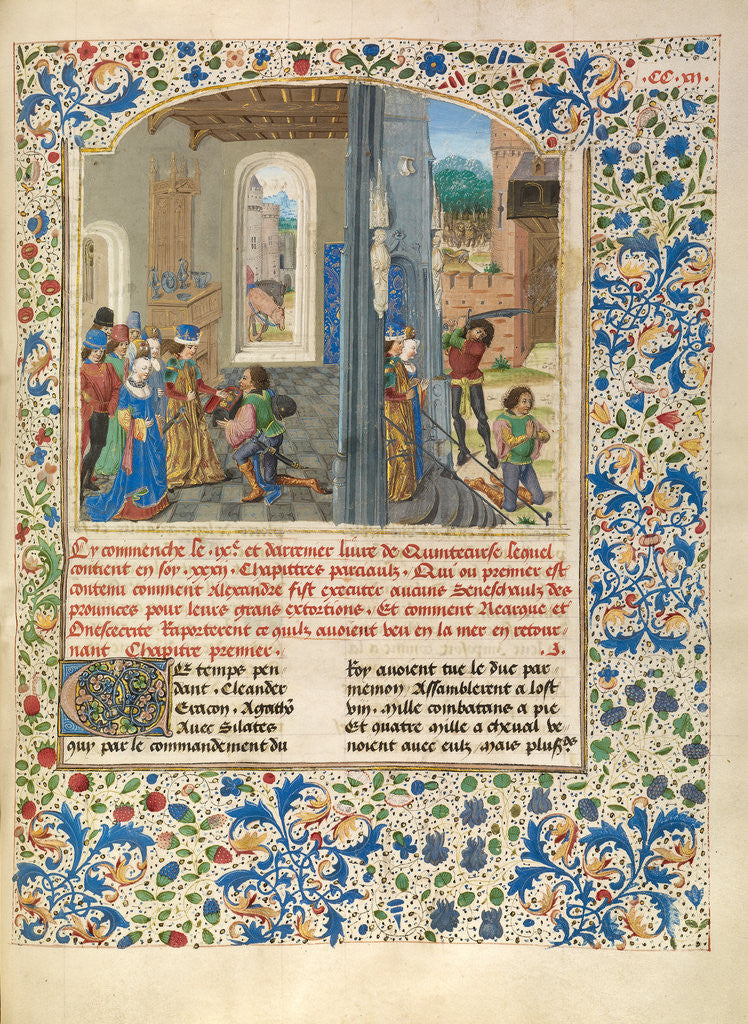 .CC.xii.
Cy commenche le .ixe. et darremer liure de Quintecurse lequel
contient en soy .xxxii. Chapittres parciaulx. Qui ou premier est
contenu comment Alexandre fist executer aucuns Seneschaulz des
prouinces pour leurs grans extortions. Et comment Nearque et
Onescecrite Raporterent ce quilz auoient veu en la mer en retour-
nant Chapitre premier. .I.
CEt temps pen-
dant. Cleander
Eracon. Agathon
Auec Silates
quy par le commandement du
Roy auoient tue le duc par
menion Assamblerent a lost
vin. mille combatans a pie
Et quatre mille a cheual ve
noient auec eulx, Mais pluss des